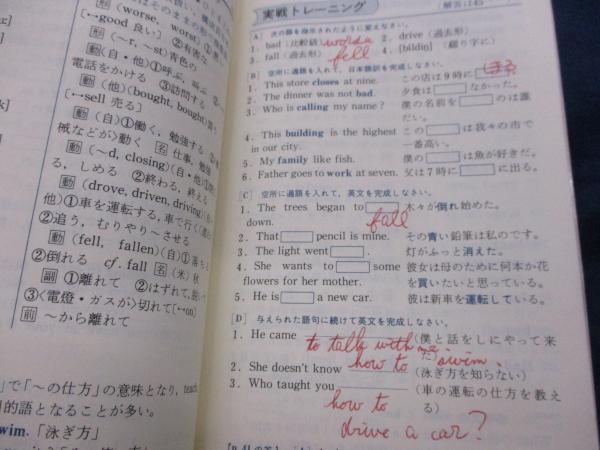 形) (worse, worst) ①悪い,
[↔good 良い] ②有害な
動 (〜r, 〜st) 青色の
動 (自・他) ①呼ぶ, 叫ぶ ②
電話をかける ③訪問する
動 (他) (bought, bought) 買う
[↔sell 売る]
動 (自) ①働く, 勉強する ②
械などが>動く 名 仕事, 勉強
動 (〜d, closing) (自・他) ①閉
る, しめる ②終わる, 終える
動 (drove, driven, driving) (自・
他) ①車を運転する, 車で行く
②追う, むりやり〜させる
動 (fell, fallen) (自) ①落ちる
②倒れる cf. fall 名 (米) 秋
副 ①離れて ②はずれて,
③<電燈・ガスが>切れて[↔on]
前 〜から離れて
で「〜の仕方」の意味となり, teach
的語となることが多い.
wim.「泳ぎ方」
実戦トレーニング
[A] 次の語を指示されたように変えなさい.
1. bad (比較級) worse 2. drive (過去形)
3. fall (過去形) fell 4. [bíldiŋ] (綴り字に)
[B] 空所に適語を入れて, 日本語訳を完成しなさい.
1. This store closes at nine. この店は9時に しまる
2. The dinner was not bad. 夕食は なかった。
3. Who is calling my name? 僕の名前を のは誰
だい。
4. This building is the highest この は我々の市で
in our city. 一番高い。
5. My family like fish. 僕の は魚が好きだ。
6. Father goes to work at seven. 父は7時に に出る。
[C] 空所に適語を入れて, 英文を完成しなさい.
1. The trees began to 木々が倒れ始めた。
down. fall
2. That pencil is mine. その青い鉛筆は私のです。
3. The light went . 灯がふっと消えた。
4. She wants to some 彼女は母のために何本か花
flowers for her mother. を買いたいと思っている。
5. He is a new car. 彼は新車を運転している。
[D] 与えられた語句に続けて英文を完成しなさい.
1. He came to talk with me. (僕と話をしにやって来
た)
2. She doesn't know how to swim. (泳ぎ方を知らない)
3. Who taught you (車の運転の仕方を教え
る)
how to
drive a car?